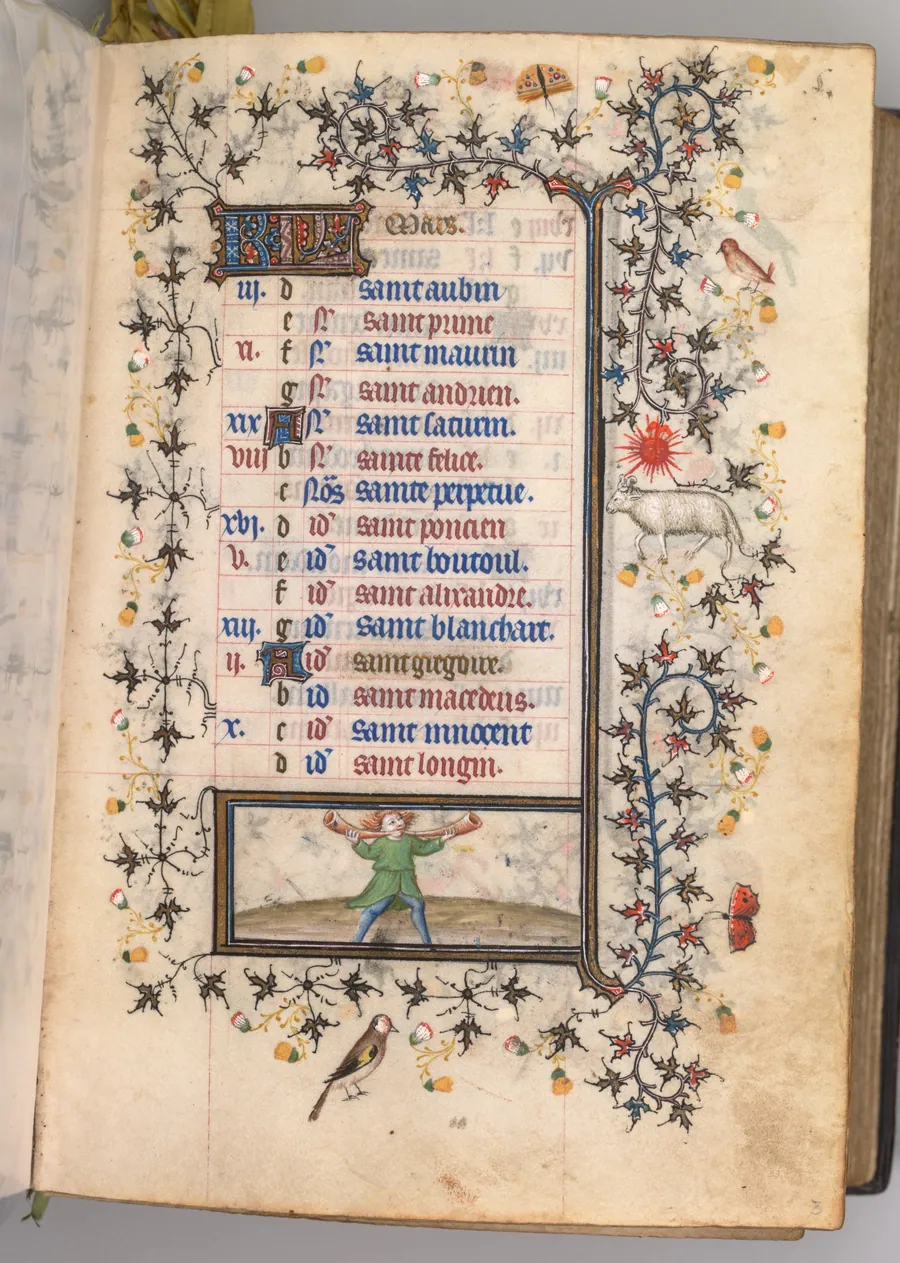 KL Mars.
iii. d saint aubin
e N saint prime
vi. f N saint maurin
g N saint andrien.
xix A N saint saturin.
viii b N sainte felice.
c Nōs sainte perpetue.
xvi. d id saint poncien
v. e id saint boutoul.
f id saint alixandre.
xiii. g id saint blanchart.
ii. A id saint gregoire.
b id saint macedeus.
x. c id saint innocent
d id saint longin.
3